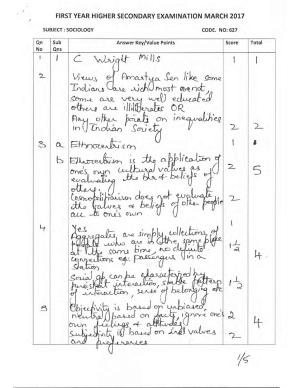 FIRST YEAR HIGHER SECONDARY EXAMINATION MARCH 2017
SUBJECT : SOCIOLOGY CODE. NO: 627
Qn No Sub Qns Answer Key/Value Points Score Total
1 1 C Wright Mills 1 1
2 Views of Amartya Sen like some
Indians are rich most are not,
some are very well educated
others are illiterates OR
Any other points on inequalities
in Indian Society 2 2
3 a Ethnocentrism 1
b Ethnocentrism is the application of
one's own cultural values as
evaluating the and beliefs of
others. 2 5
Cosmopolitanism does not evaluate
the values & beliefs of other people
acc to one's own 2
4 Yes
Aggregates are simply collections of
people who are in the same place
at the same time, no definite
connections eg: passengers in a
station 1½ 4
Social gp can be characterised by
persistent interaction, stable pattern
of interaction, sense of belonging etc 1½
5 Objectivity is based on unbiased,
neutral, based on facts, ignore one's
own feelings & attitudes 2 4
Subjectivity is based on values
and preferences 2
1/5